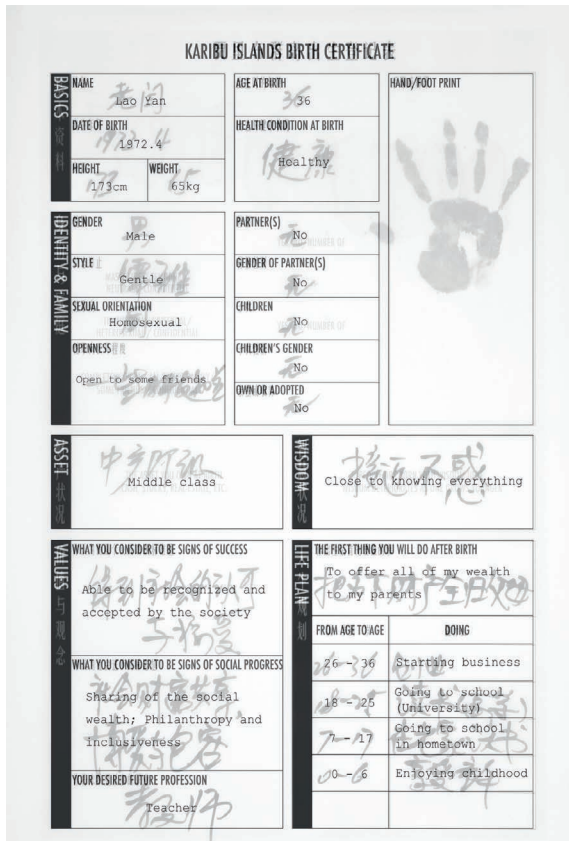 KARIBU ISLANDS BIRTH CERTIFICATE
BASICS 资料
NAME
老闫
Lao Yan
DATE OF BIRTH
1972.4
1972.4
HEIGHT
173
173cm
WEIGHT
65
65kg
AGE AT BIRTH
36
36
HEALTH CONDITION AT BIRTH
健康
Healthy
HAND/FOOT PRINT
IDENTITY & FAMILY
GENDER
男
Male
STYLE
儒雅
Gentle
SEXUAL ORIENTATION
Homosexual
OPENNESS
Open to some friends
PARTNER(S)
无
No
GENDER OF PARTNER(S)
无
No
CHILDREN
无
No
CHILDREN'S GENDER
无
No
OWN OR ADOPTED
无
No
ASSET 状况
中产阶级
Middle class
WISDOM 状况
接近不惑
Close to knowing everything
VALUES 与观念
WHAT YOU CONSIDER TO BE SIGNS OF SUCCESS
得到社会的认可
Able to be recognized and
accepted by the society
WHAT YOU CONSIDER TO BE SIGNS OF SOCIAL PROGRESS
社会财富共享
Sharing of the social
wealth; Philanthropy and
inclusiveness
YOUR DESIRED FUTURE PROFESSION
教师
Teacher
LIFE PLAN 规划
THE FIRST THING YOU WILL DO AFTER BIRTH
To offer all of my wealth
to my parents
FROM AGE TO AGE
DOING
26 - 36
创业
Starting business
18 - 25
Going to school
(University)
7 - 17
Going to school
in hometown
0 - 6
Enjoying childhood